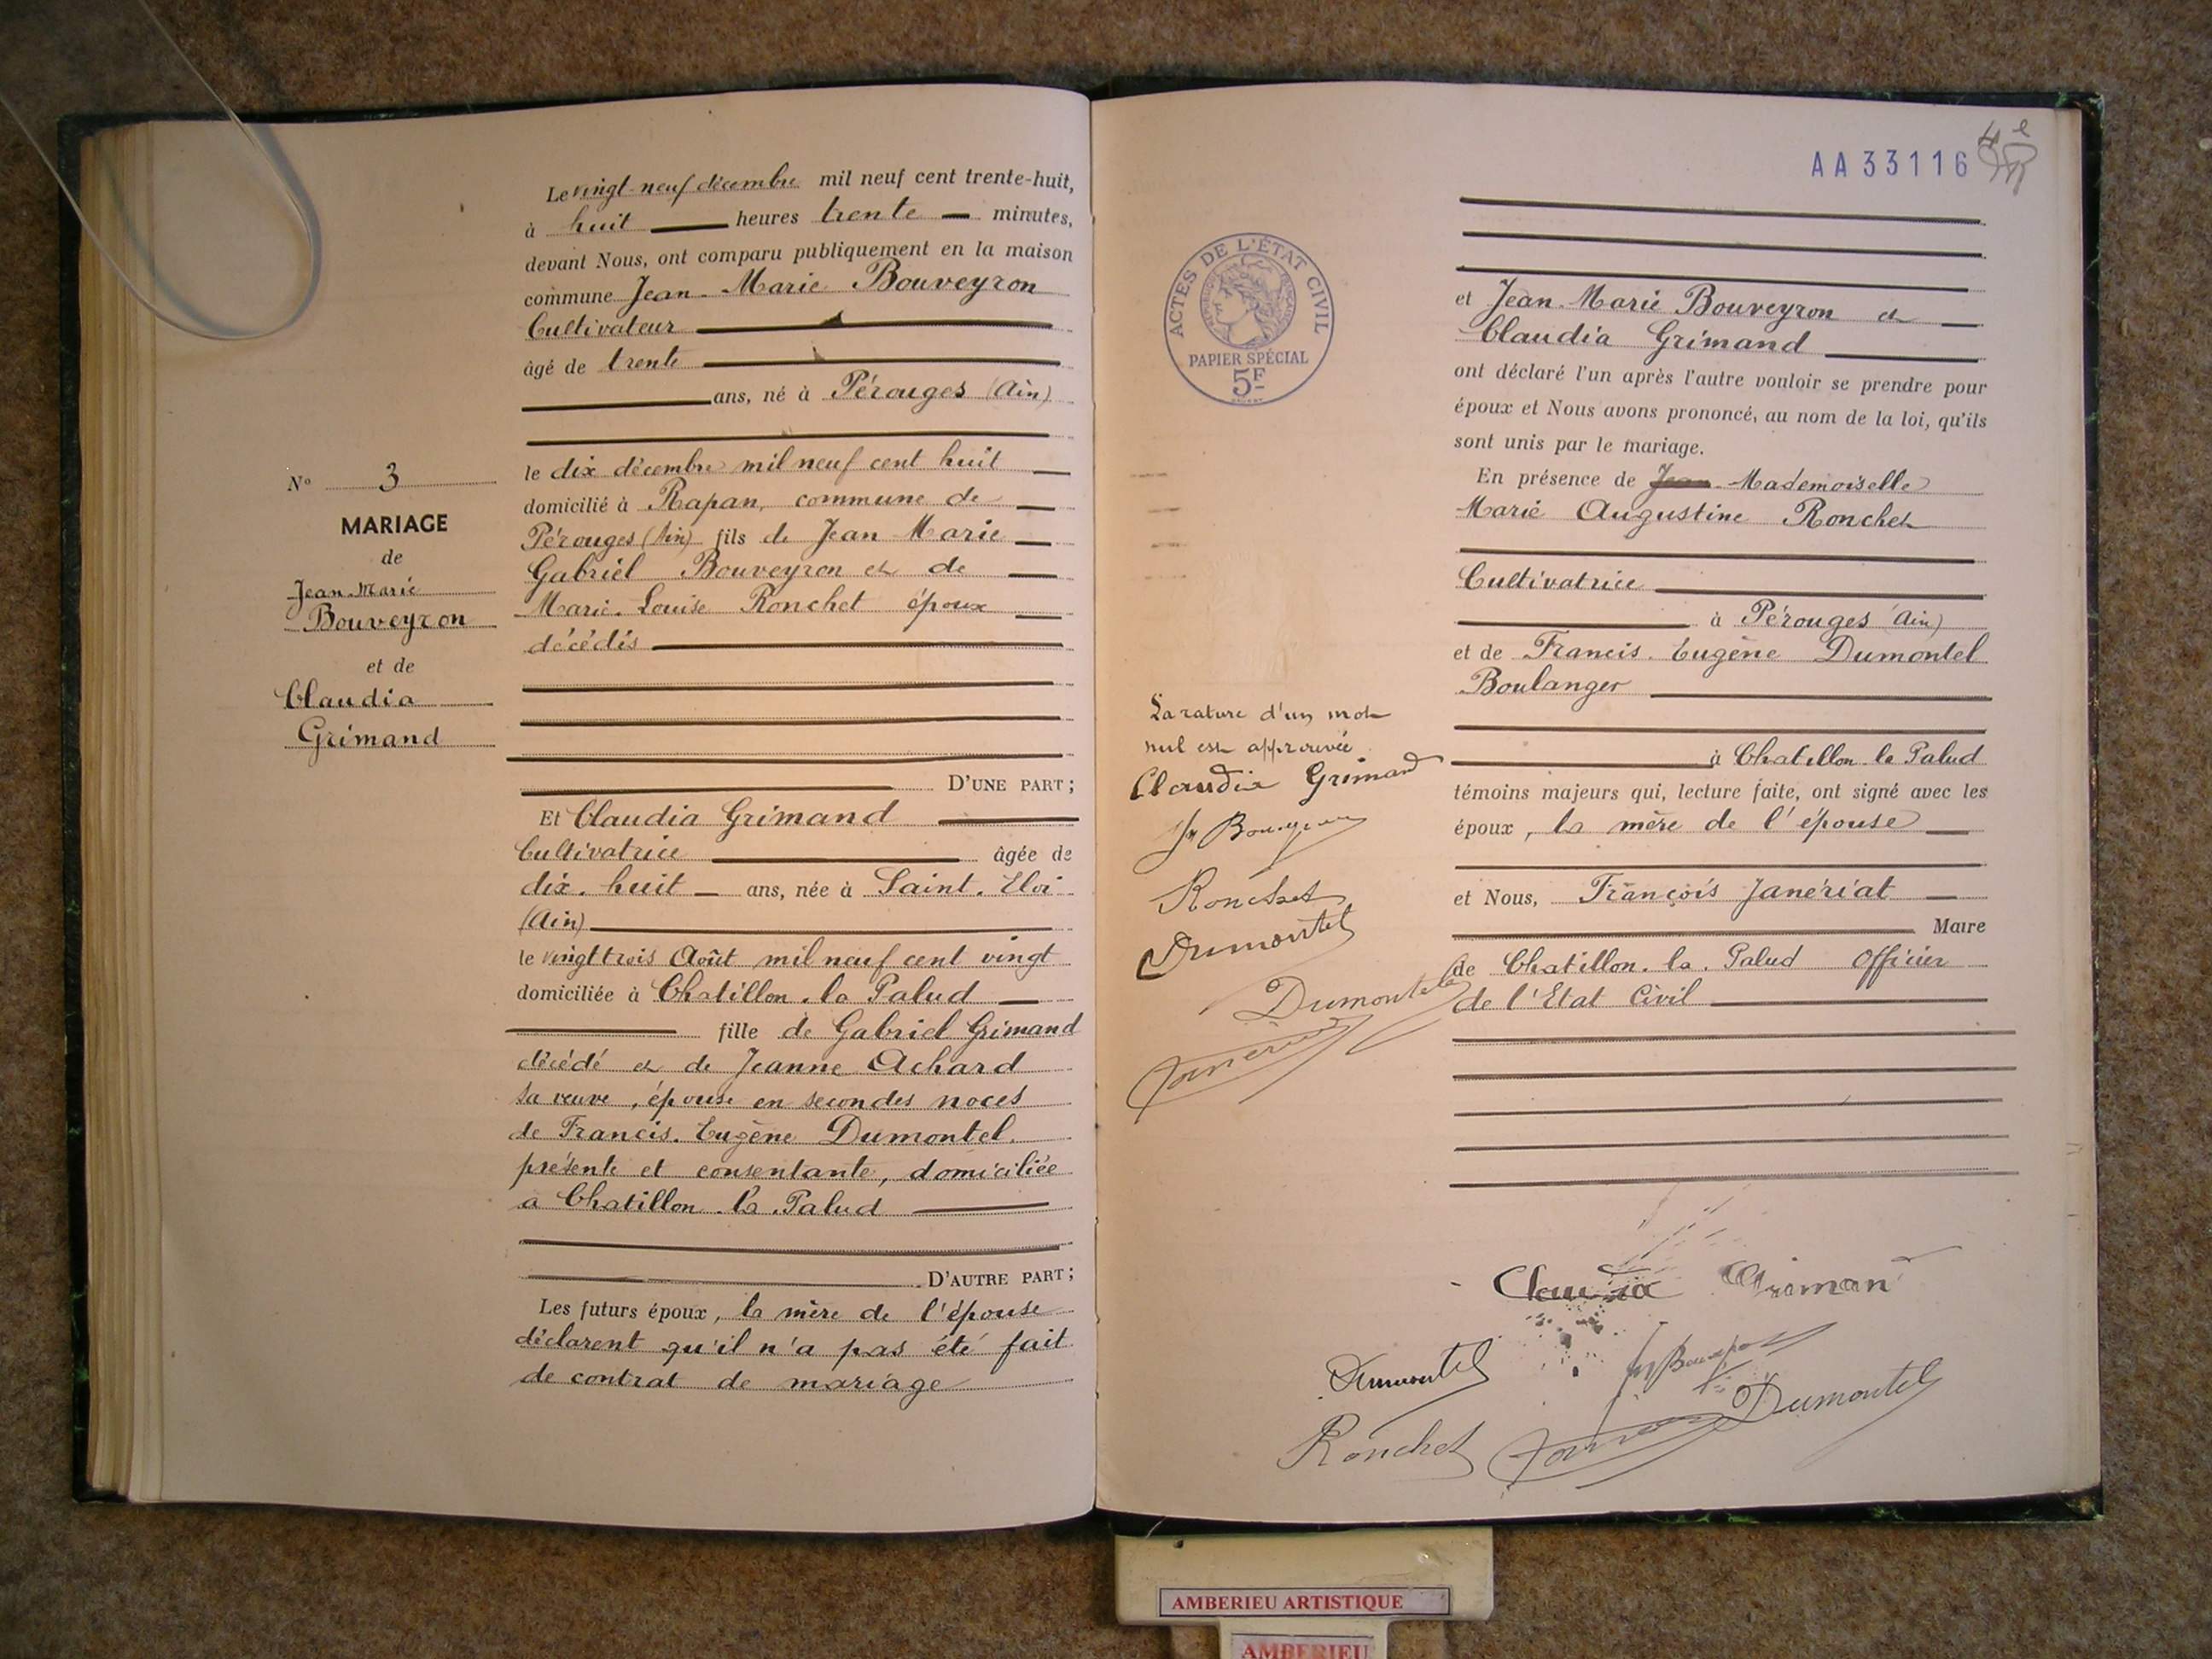 Le vingt-neuf décembre mil neuf cent trente-huit,
à huit heures trente minutes,
devant Nous, ont comparu publiquement en la maison
commune Jean-Marie Bouveyron
Cultivateur
âgé de trente
ans, né à Pérouges (Ain)
le dix décembre mil neuf cent huit
domicilié à Rapan, commune de
Pérouges (Ain) fils de Jean Marie
Gabriel Bouveyron et de
Marie-Louise Ronchet époux
décédés
D'UNE PART;
Et Claudia Grimand
Cultivatrice âgée de
dix-huit ans, née à Saint-Eloi
(Ain)
le vingt trois Août mil neuf cent vingt
domiciliée à Chatillon-la Palud
fille de Gabriel Grimand
décédé et de Jeanne Achard
sa veuve, épouse en secondes noces
de Francis-Eugène Dumontel
présente et consentante, domiciliée
a Chatillon-la-Palud
D'AUTRE PART;
Les futurs époux, la mère de l'épouse
déclarent qu'il n'a pas été fait
de contrat de mariage
N° 3
MARIAGE
de
Jean-Marie
Bouveyron
et de
Claudia
Grimand
AA33116
ACTES DE L'ÉTAT CIVIL
RÉPUBLIQUE FRANÇAISE
PAPIER SPÉCIAL
5F
et Jean-Marie Bouveyron et
Claudia Grimand
ont déclaré l'un après l'autre vouloir se prendre pour
époux et Nous avons prononcé, au nom de la loi, qu'ils
sont unis par le mariage.
En présence de Jean Mademoiselle
Marie Augustine Ronchet
Cultivatrice
à Pérouges (Ain)
et de Francis-Eugène Dumontel
Boulanger
à Chatillon-la Palud
témoins majeurs qui, lecture faite, ont signé avec les
époux, la mère de l'épouse
et Nous, François Janériat
Maire
de Chatillon-la-Palud Officier
de l'Etat Civil
La rature d'un mot
nul est approuvée
Claudia Grimand
Ronchet
Dumontel
Dumontel
Claudia Grimand
Dumontel
Dumontel
Ronchet
AMBERIEU ARTISTIQUE
AMBERIEU